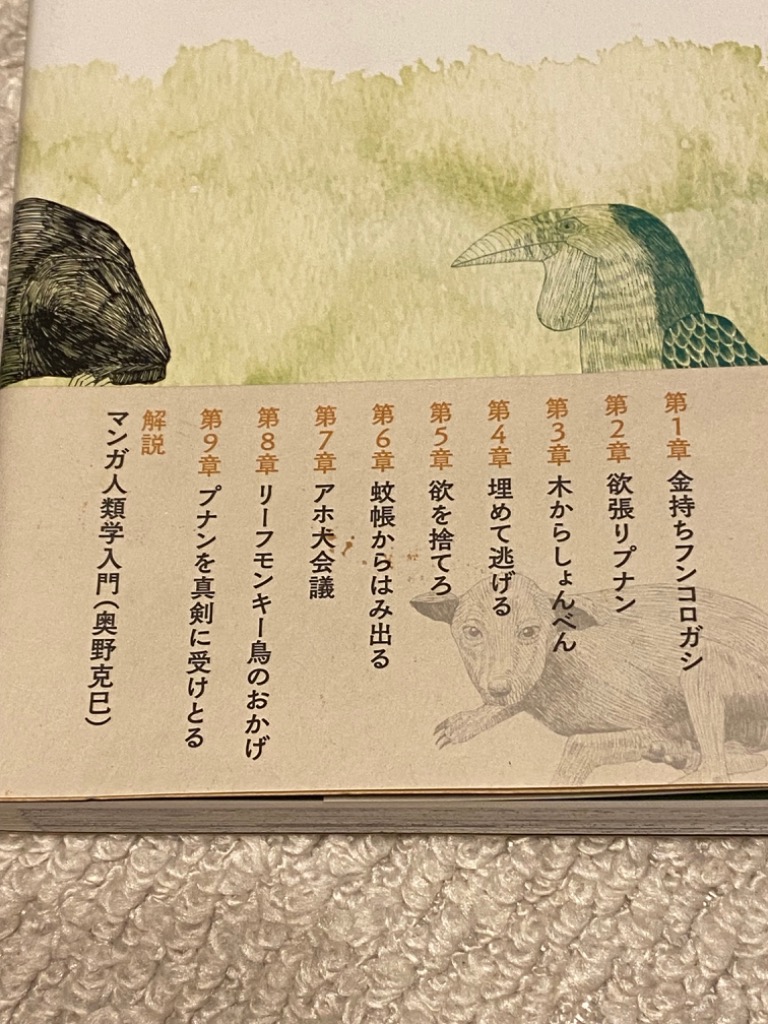 第1章 金持ちフンコロガシ
第2章 欲張りプナン
第3章 木からしょんべん
第4章 埋めて逃げる
第5章 欲を捨てろ
第6章 蚊帳からはみ出る
第7章 アホ犬会議
第8章 リーフモンキー鳥のおかげ
第9章 プナンを真剣に受けとる
解説
マンガ人類学入門(奥野克巳)